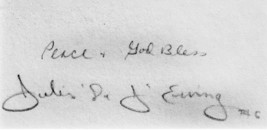 Peace & God Bless
Julius "Dr. J" Erving
#6